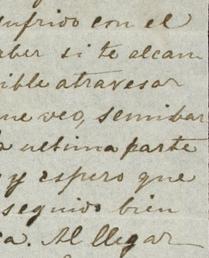 sufrido con el
saber si te alcan
sible atravesar
que veo, semibar
la ultima parte
y espero que
seguido bien
Al llegar